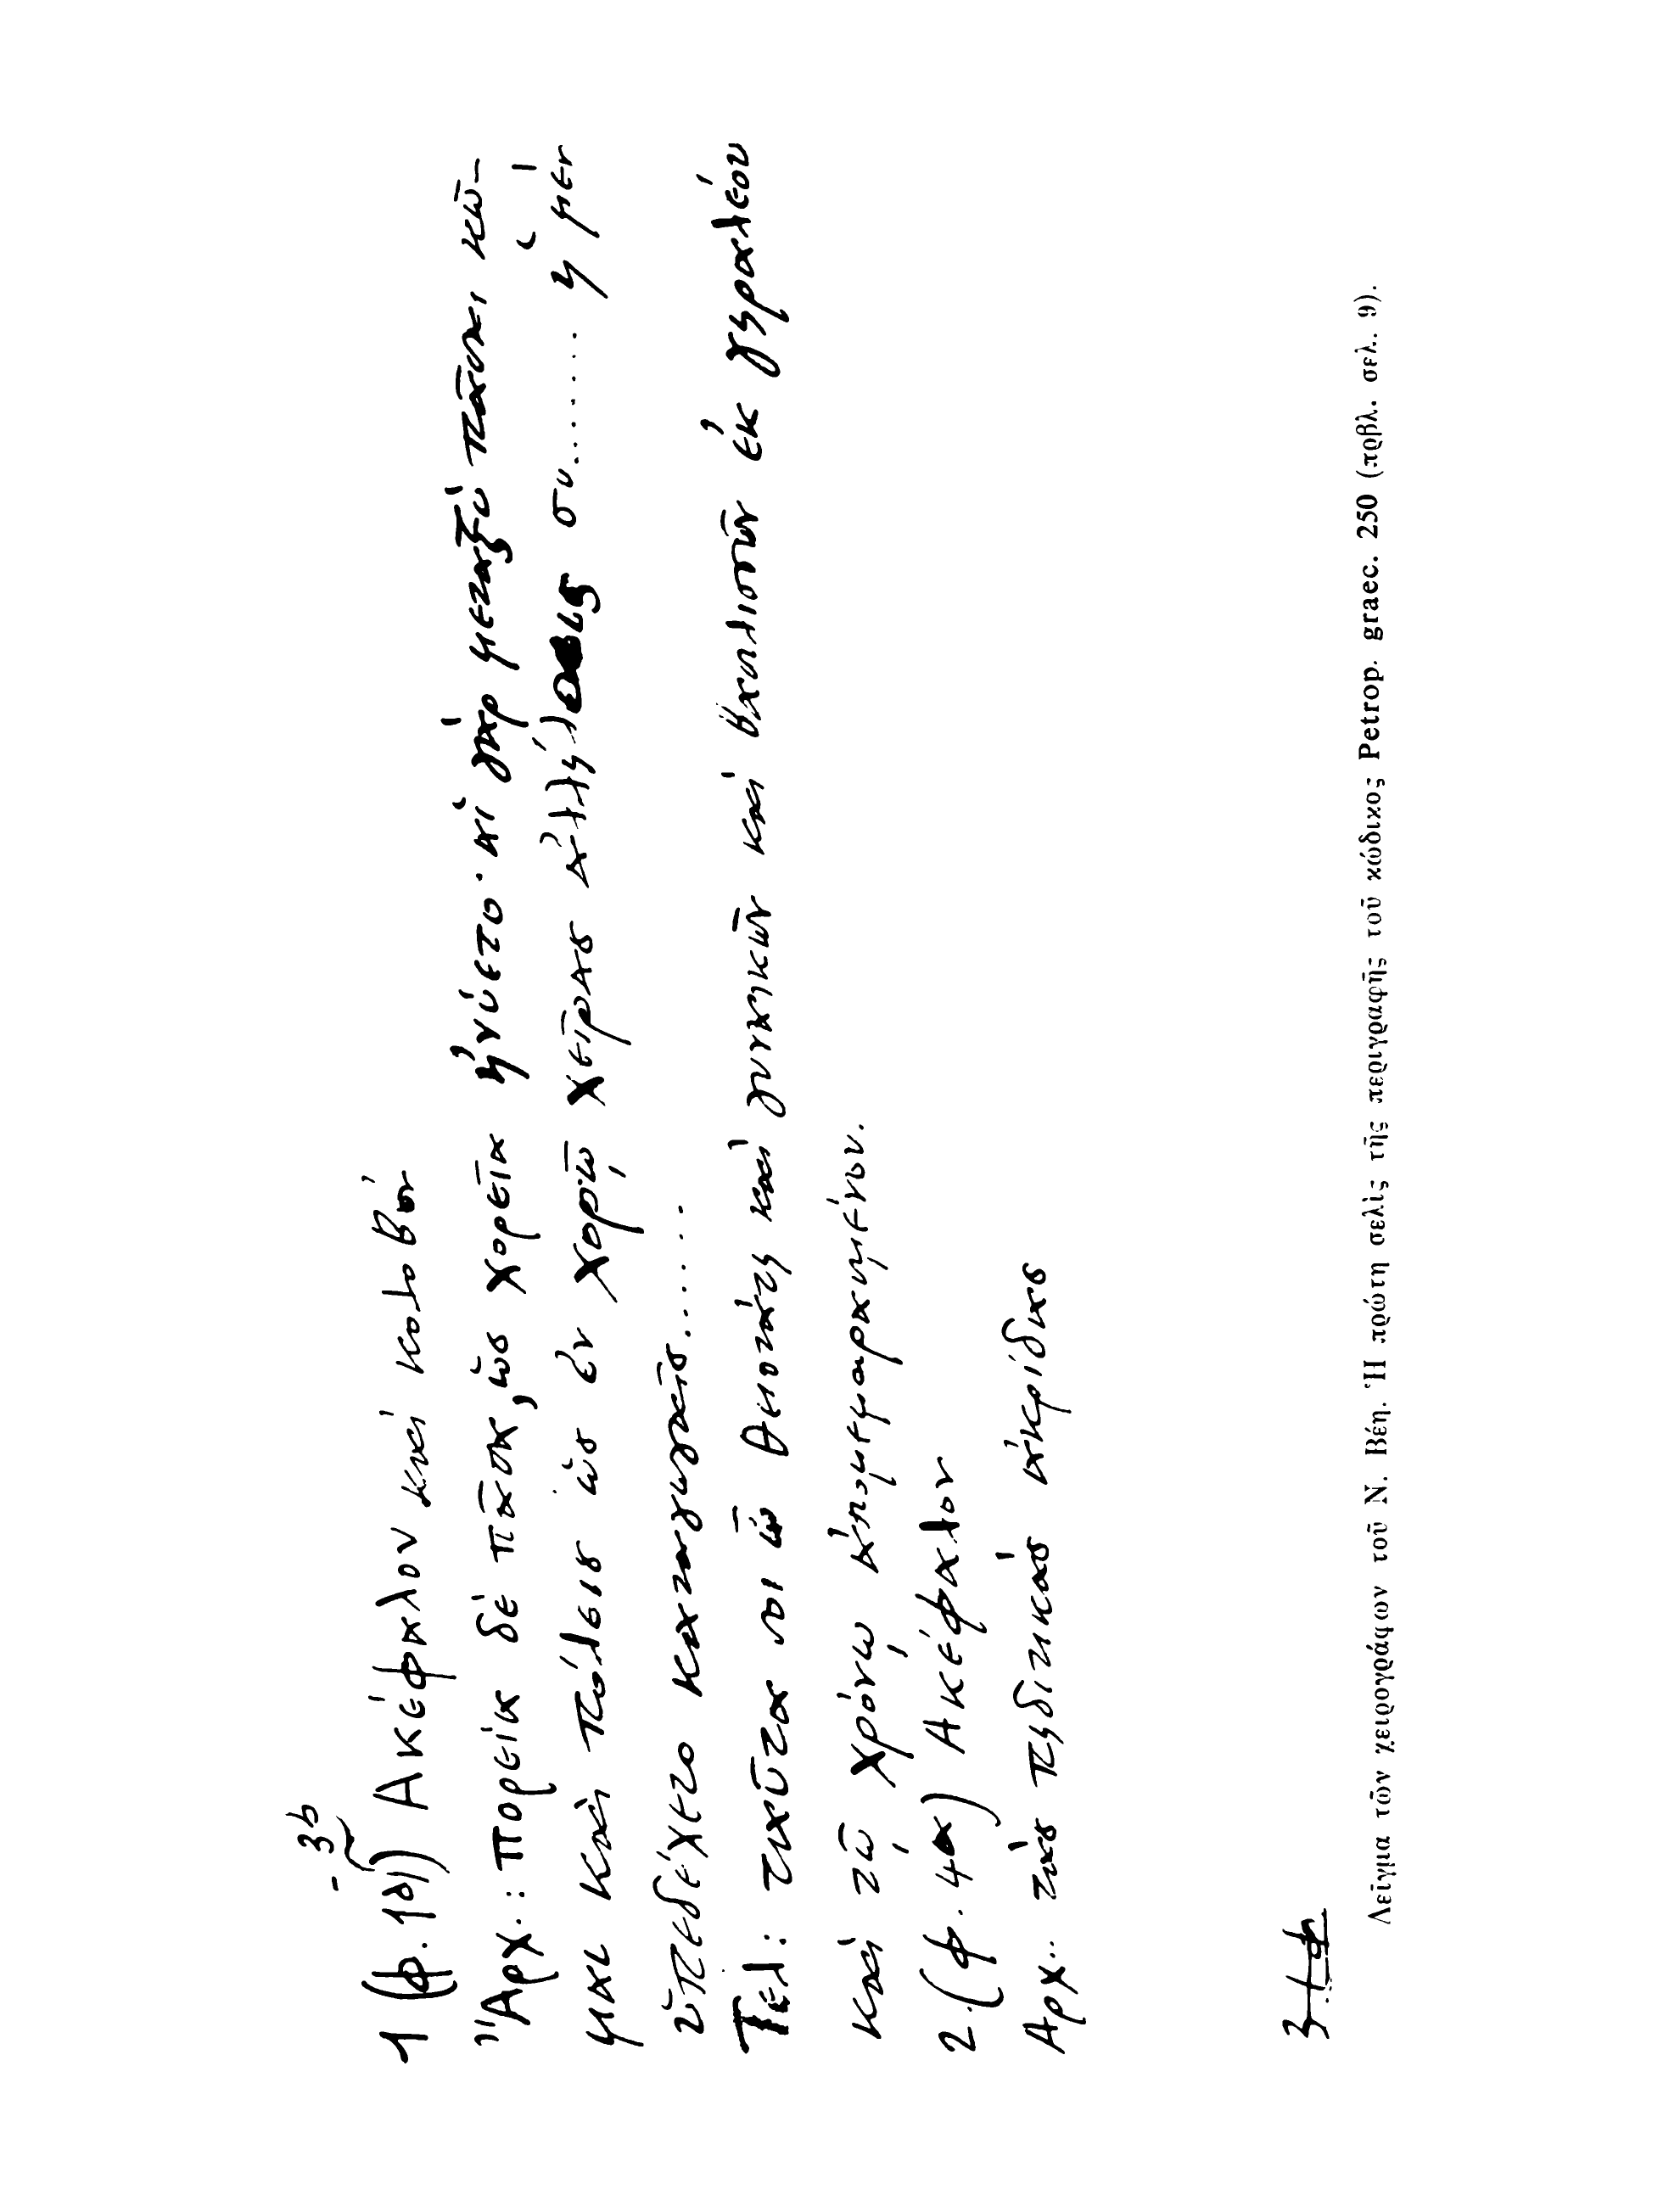 - 3b
1 (φ. 1α) Ἀκέφαλον καὶ κολοβόν
Ἀρχ.: πορεία δὲ πᾶσα, ὡς χορεία ἠνύετο· αἱ γὰρ μεταξὺ πᾶσαι κῶ-
μαι καὶ πόλεις ὡς ἐν χορῷ χεῖρας ἀλλήλαις συ....... ἡ μὲν
ὑπεδέχετο καταγωγαῖς......
Τέλ: ταῦτα σοι ὦ καὶ γυναικῶν καὶ ἐκ γηραλέου
καὶ τῷ χρόνῳ
2. (φ. 4α) Ἀκέφαλον
Ἀρχ.. τὰς πηδητικὰς ἀκρίδας
Δεῖγμα τῶν χειρογράφων τοῦ Ν. Βέη. Ἡ πρώτη σελὶς τῆς περιγραφῆς τοῦ κώδικος Petrop. graec. 250 (πρβλ. σελ. 9).